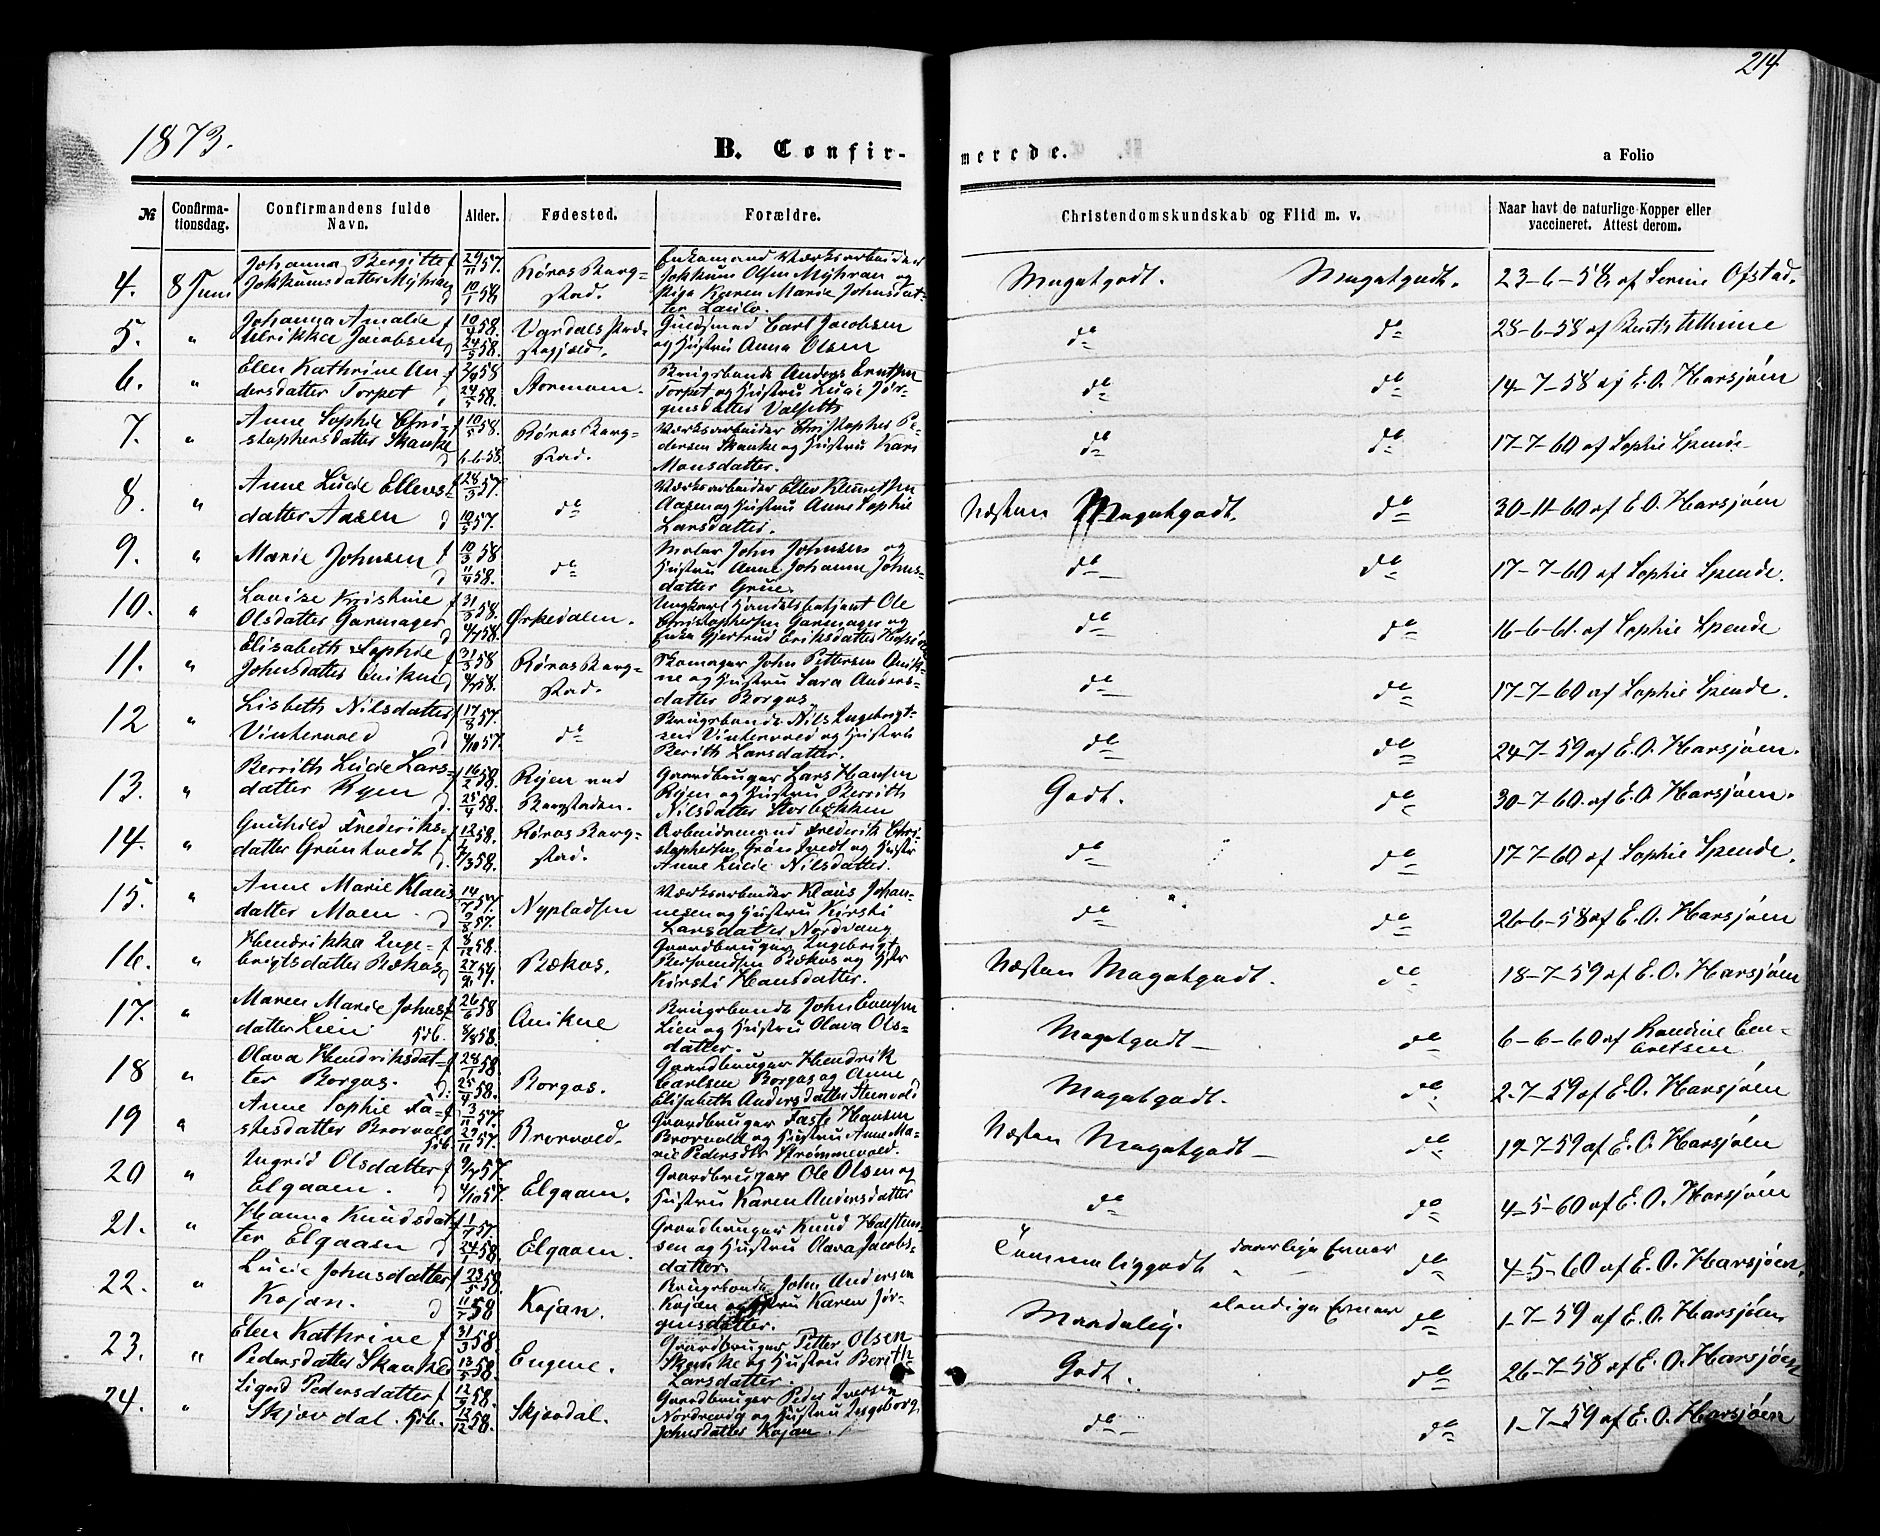 214
1873.
B. Confir-
merede.
a Folio
№
Confirma-
tionsdag.
Confirmandens fulde
Navn.
Alder.
Fødested.
Forældre.
Christendomskundskab og Flid m. v.
Naar havt de naturlige Kopper eller
vaccineret. Attest derom.
4. 8 Juni
Johanna Bergitte f
Jokkumsdatter Myhran d
29/11 57.
10/1 58
Røros Berg-
stad.
Enkemand Værksarbeider
Jokkum Olsen Myhran og
Pige Karen Marie Johnsdat-
ter Laulo.
Megetgodt. Megetgodt.
23-6-58 af Serine Ofstad.
5. "
Johanna Amalie f
Ulrikke Jacobsen d
10/4 58.
24/5 58.
Guldsmed Carl Jacobsen
og Hustru Anna Olsen
do do
28-6-58 af
6. "
Elen Kathrine An- f
dersdatter Torpet d
24/5 58.
Brugsbonde Anders Erntsen
Torpet og Hustru Lucie Jør-
gensdatter
do do
14-7-58 af E. O. Harsjøen
7. "
Anne Sophie Chri- f
stophersdatter Skanke d
10/5 58.
6-6-58.
Røros Berg-
stad.
Værksarbeider Christopher Pe-
dersen Skanke og Hustru Kari
Monsdatter.
do do
17-7-60 af Sophie Spende
8. "
Anne Lucie Ellevs- f
datter Aasen d
28/3 57.
10/5 57.
do
Værksarbeider Ellev Klemetsen
Aasen og Hustru Anne Sophie
Larsdatter.
Næsten Megetgodt. do
30-11-60 af E. O. Harsjøen
9. "
Marie Johnsen f
d
10/3 58.
11/4 58.
do
Maler John Johnsen og
Hustru Anne Johanne Johns-
datter Grue.
do do
17-7-60 af Sophie Spende.
10. "
Lovise Kristine f
Olsdatter Garmager d
31/3 58.
4/7 58.
Ørkedalen.
Ungkarl Handelsbetjent Ole
Christophersen Garmager og
Enke Gjertrud Eriksdatter
do do
16-6-61. af Sophie Spende
11. "
Elisabeth Sophie f
Johnsdatter Aulkne d
31/3 58
4/7 58.
Røros Berg-
stad.
Skomager John Pettersen
og Hustru Sara Anders-
datter Borgos.
do do
17-7-60 af Sophie Spende.
12 "
Lisbeth Nilsdatter f
Vintervold d
17/8 57.
4/10 57.
do
Brugsbonde Nils Ingebrigt-
sen Vintervold og Hustru
Berith Larsdatter.
do do
24-7-59 af E. O. Harsjøen.
13. "
Berrith Lucie Lars- f
datter Ryen d.
16/2 58.
25/4 58.
Ryen ved
Bergstaden.
Gaardbruger Lars Hansen
Ryen og Hustru Berrith
Nilsdatter Storbækken
Godt. do
30-7-60. af E. O. Harsjøen.
14. "
Gunhild Frederiks- f
datter Grøntvedt d.
12/1 58.
7/3 58.
Røros Berg-
stad.
Arbeidsmand Frederik Chri-
stophersen Grøntvedt og Hustr
Anne Lucie Nilsdatter.
do do
17-7-60 af Sophie Spende.
15. "
Anne Marie Klaus f
datter Moen. d
14/7 57.
9/8 57.
Nypladsen
Værksarbeider Klaus Johan-
nesen og Hustru Kirsti
Larsdatter Nordvang
do do
26-6-58 af E. O. Harsjøen
16. "
Hendrikka Inge- f
brigtsdatter Bækos d
8/12 58.
27/2 59.
Bækos.
Gaardbruger Ingebrigt
Bersvendsen Bækos og Hstr
Kirsti Hansdatter.
Næsten Megetgodt. do
18-7-59 af E. O. Harsjøen
17. "
Maren Marie Johns f
datter Lien. Hjb.
26/6 58
8/8 58.
Brugsbonde John Evensen
Lien og Hustru Olava Ols-
datter.
Megetgodt do
6-6-60 af
18 "
Olava Hendriksdat- f
ter Borgos. d.
28/1 58.
25/4 58.
Borgos.
Gaardbruger Hendrik
Carlsen Borgos og Anne
Elisabeth Andersdatter Stenvold
Megetgodt. do
2-7-59 af E. O. Harsjøen
19 "
Anne Sophie Fa- f
stesdatter Brovold Hjb.
3/11 57.
29/11 57.
Brovold.
Gaardbruger Faste Hansen
Brovold og Hustru Anne Ma-
rie Pedersdtr Strømmevold.
Næsten Megetgodt do
17-7-59 af E. O. Harsjøen
20 "
Ingrid Olsdatter f
Elgaaen. d
9/7 57.
4/10 57.
Elgaaen.
Gaardbruger Ole Olsen og
Hustru Karen Andersdatter
do do
4-5-60 af E. O. Harsjøen
21. "
Hanna Knudsdat f
ter Elgaaen d
24/1 58.
Elgaaen.
Gaardbruger Knud Halsten-
sen og Hustru Olava Jacobs-
datter.
Temmeliggodt daarlige Evner do
4-5-60 af E. O. Harsjøen.
22. "
Lucie Johnsdatter f
Kojan. d
23/5 58.
11/7 58
Kojan.
Brugsbonde John Andersen
Kojan og Hustru Karen Jør-
gensdatter.
Maadelig. elendige Evner do
1-7-59 af E. O. Harsjøen
23. "
Elen Kathrine f
Pedersdatter Skanke d
31/3 58.
13/5 58.
Engene.
Gaardbruger Petter Olsen
Skanke og Hustru Berith
Larsdatter.
Godt. do
26-7-58 af E. O. Harsjøen
24. "
Sigrid Pedersdatter f
Skjøvdal. Hjb.
12/9 58.
12/12 58.
Skjøvdal.
Gaardbruger Peder Iversen
og Hustru Ingeborg
Johnsdatter Kojan.
do do
1-7-59 af E. O. Harsjøen